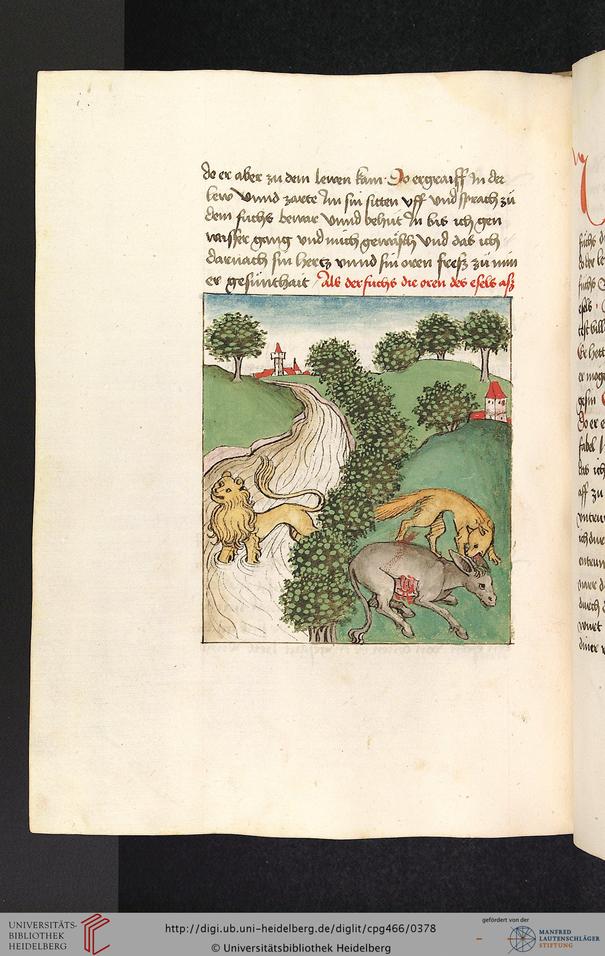 do er aber zu dem lewen kam · Do ergraiff In der
lew Vnnd zarte Im sin sitten vff vnd sprach zů
dem fuchs bewar Vnnd behüt In bis ich gen
wasser gang vnd mich gewäsch Vnd das ich
darnach sin hertz vnnd sin oren fress zu min
er gesünthait / Als der fuchs die oren des esels asz
UNIVERSITÄTS-
BIBLIOTHEK
HEIDELBERG
http://digi.ub.uni-heidelberg.de/diglit/cpg466/0378
© Universitätsbibliothek Heidelberg
gefördert von der
MANFRED
LAUTENSCHLÄGER
STIFTUNG